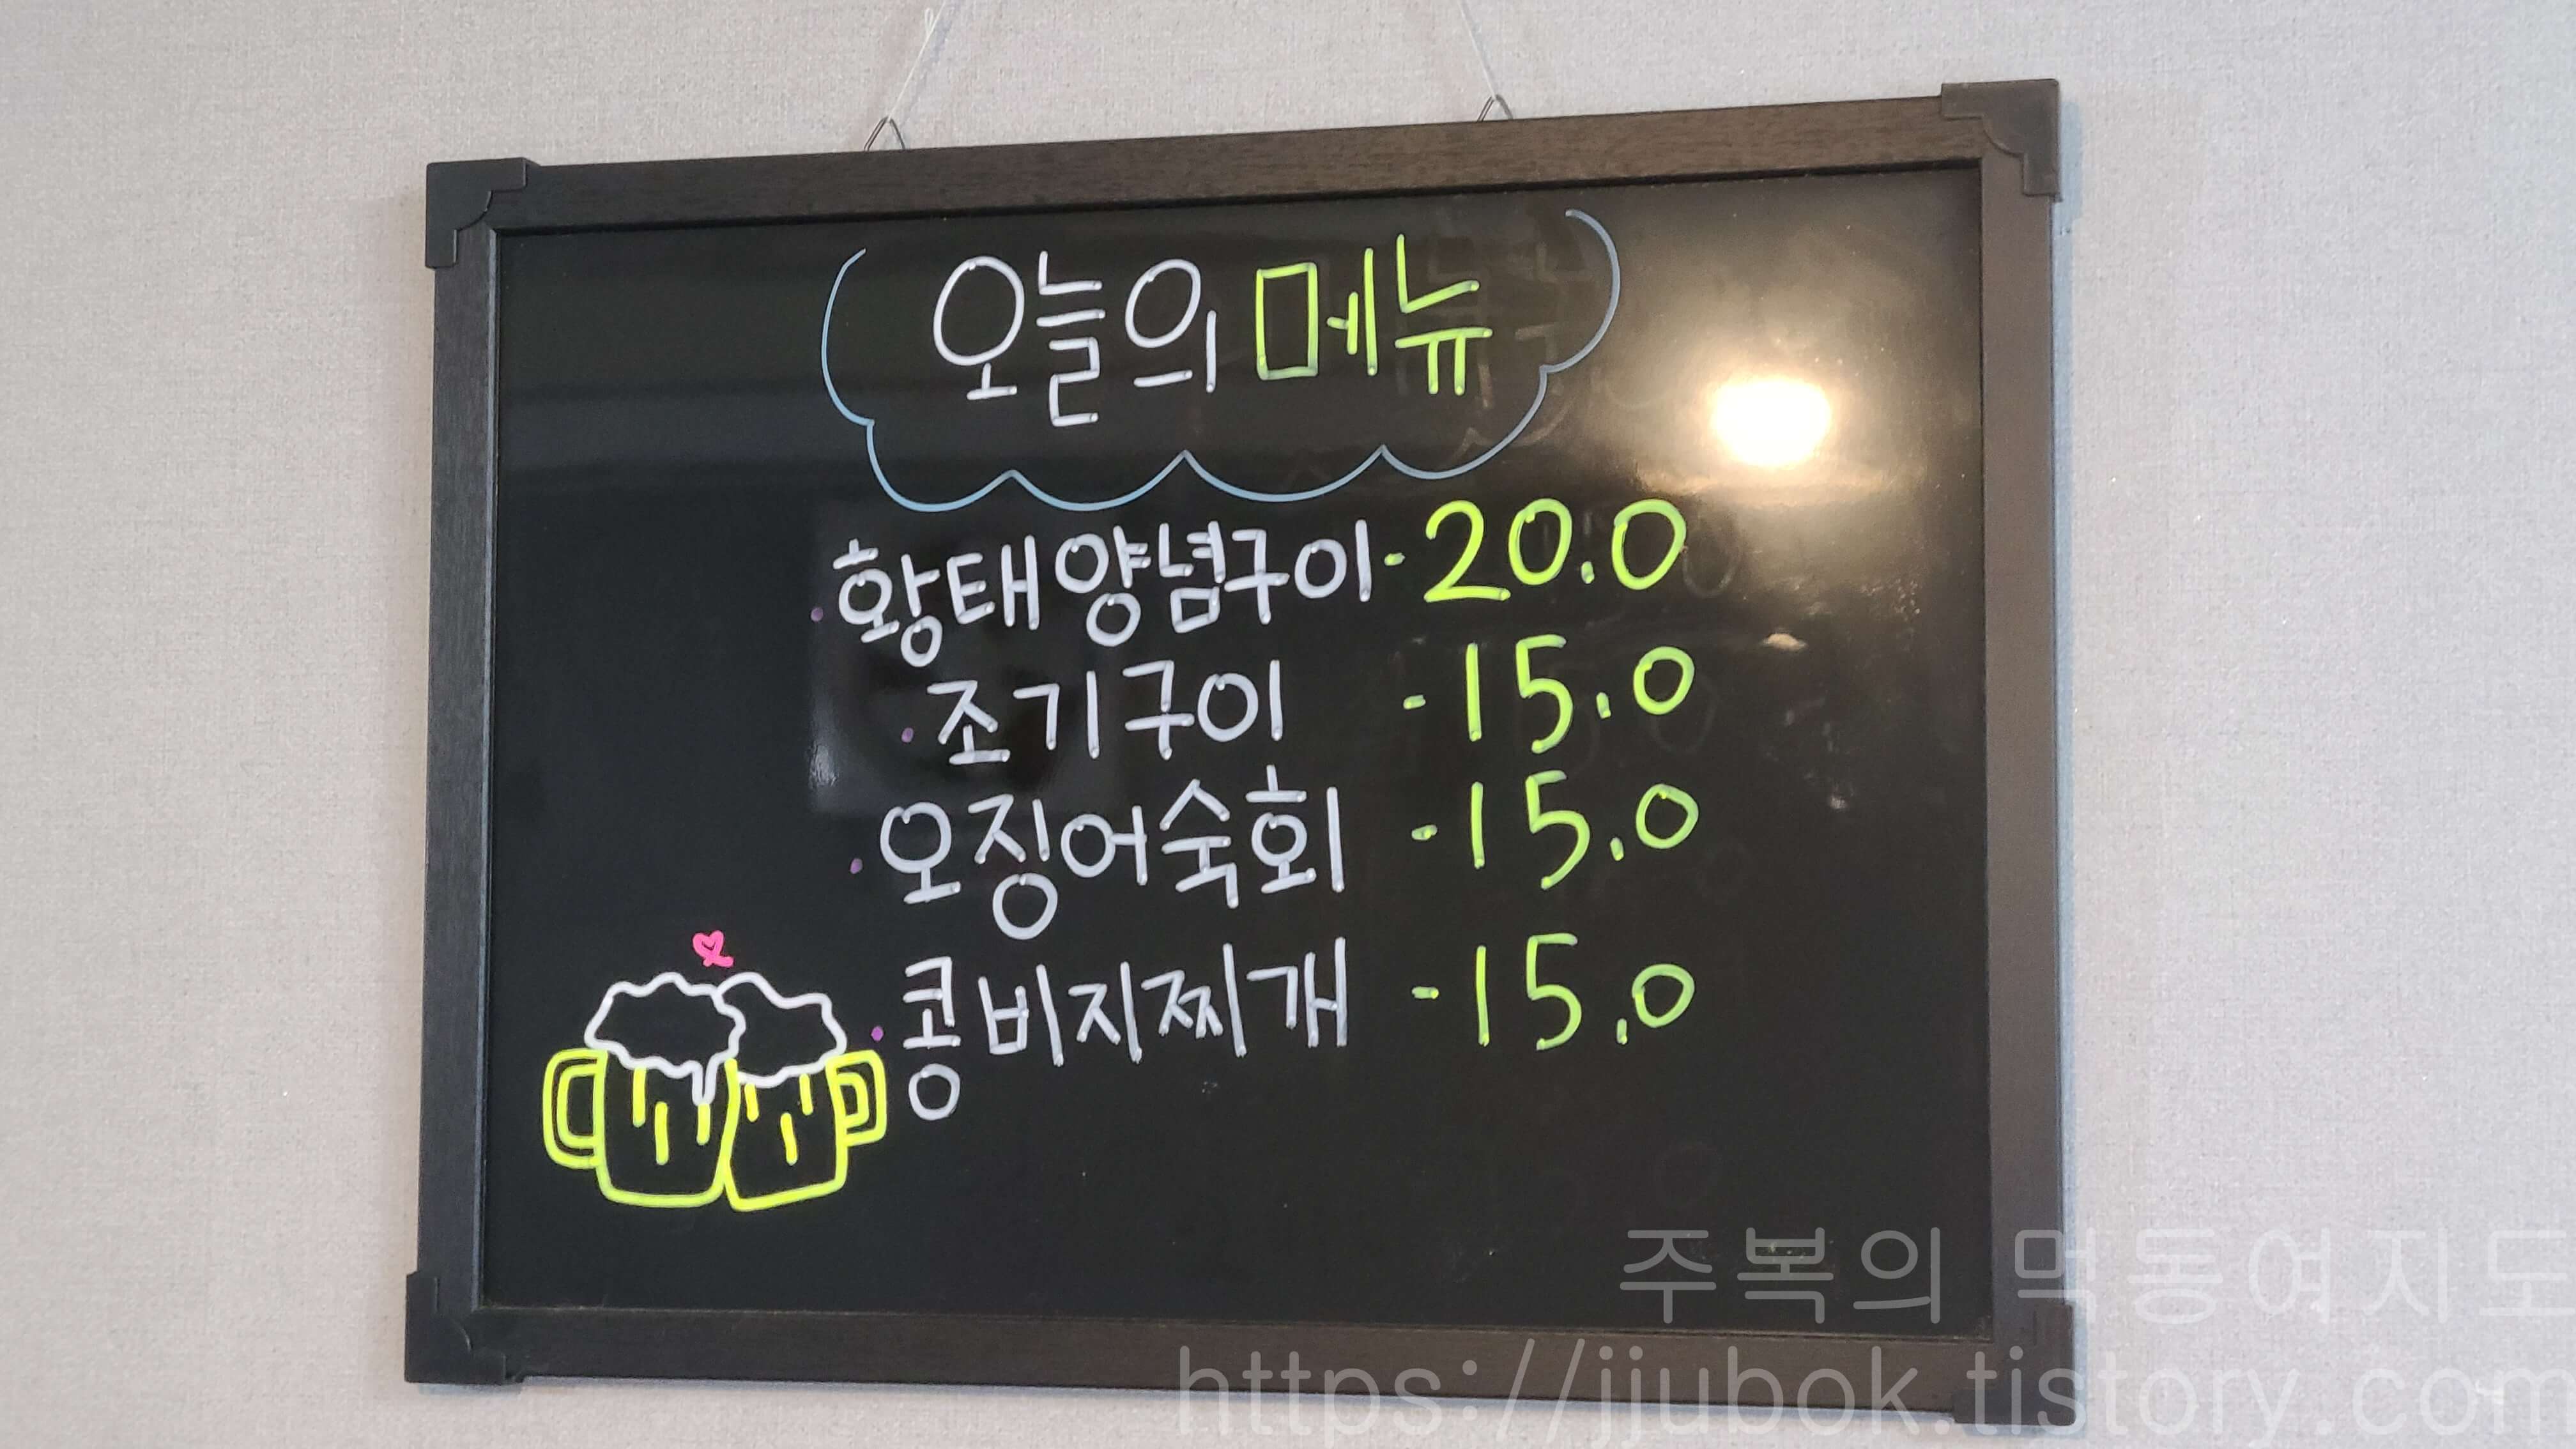 오늘의 메뉴
· 황태양념구이 - 20.0
· 조기구이 - 15.0
· 오징어숙회 - 15.0
· 콩비지찌개 - 15.0
주복의 먹동여지도
https://jjubok.tistory.com